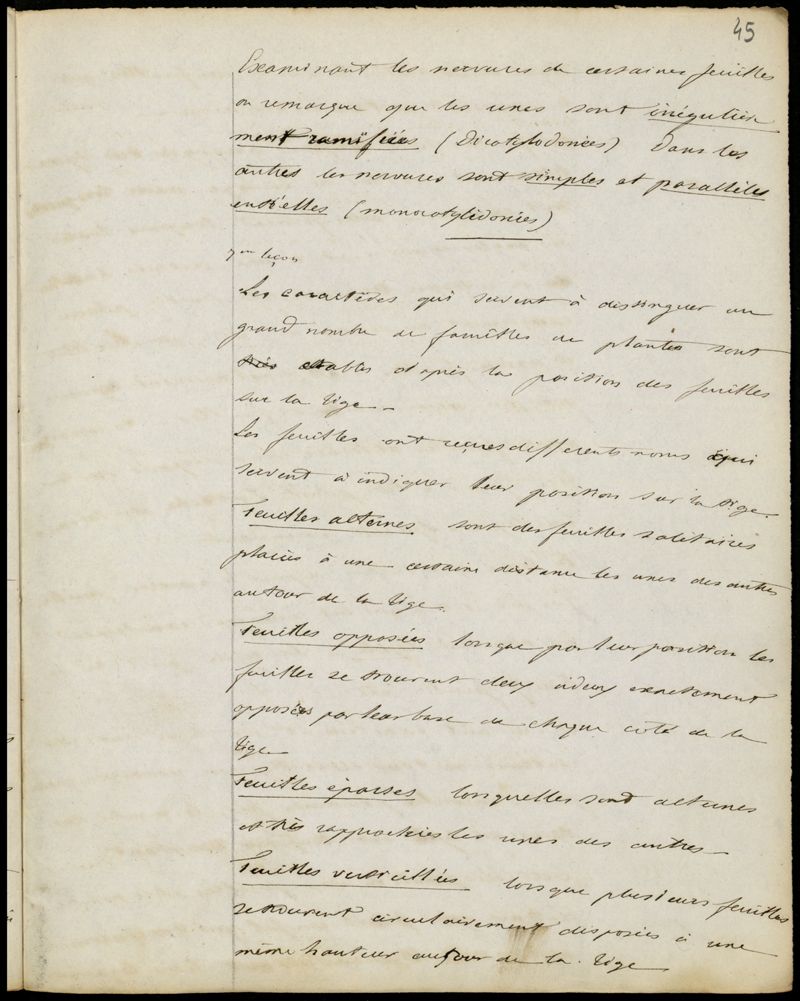 45
Examinant les nervures de certaines feuilles
on remarque que les unes sont irégulière
ment ramifiées (Dicotylodonées) Dans les
autres les nervures sont simples et parallèles
entr'elles (monocotylédonées)
7me leçon
Les caractères qui servent à distinguer un
grand nombre de familles de plantes sont
très stables d'après la position des feuilles
sur la tige.
Les feuilles ont reçues differents noms qui
servent à indiquer leur position sur la tige.
Feuilles alternes sont des feuilles solitaires
placées à une certaine distance les unes des autres
autour de la tige.
Feuilles opposées lorsque par leur position les
feuilles se trouvent deux à deux exactement
opposées par leur base de chaque côté de la
tige
Feuilles éparses lorsquelles sont alternes
et très rapprochées les unes des autres
Feuilles verticillées lorsque plusieurs feuilles
se trouvent circulairement disposées à une
même hauteur autour de la tige